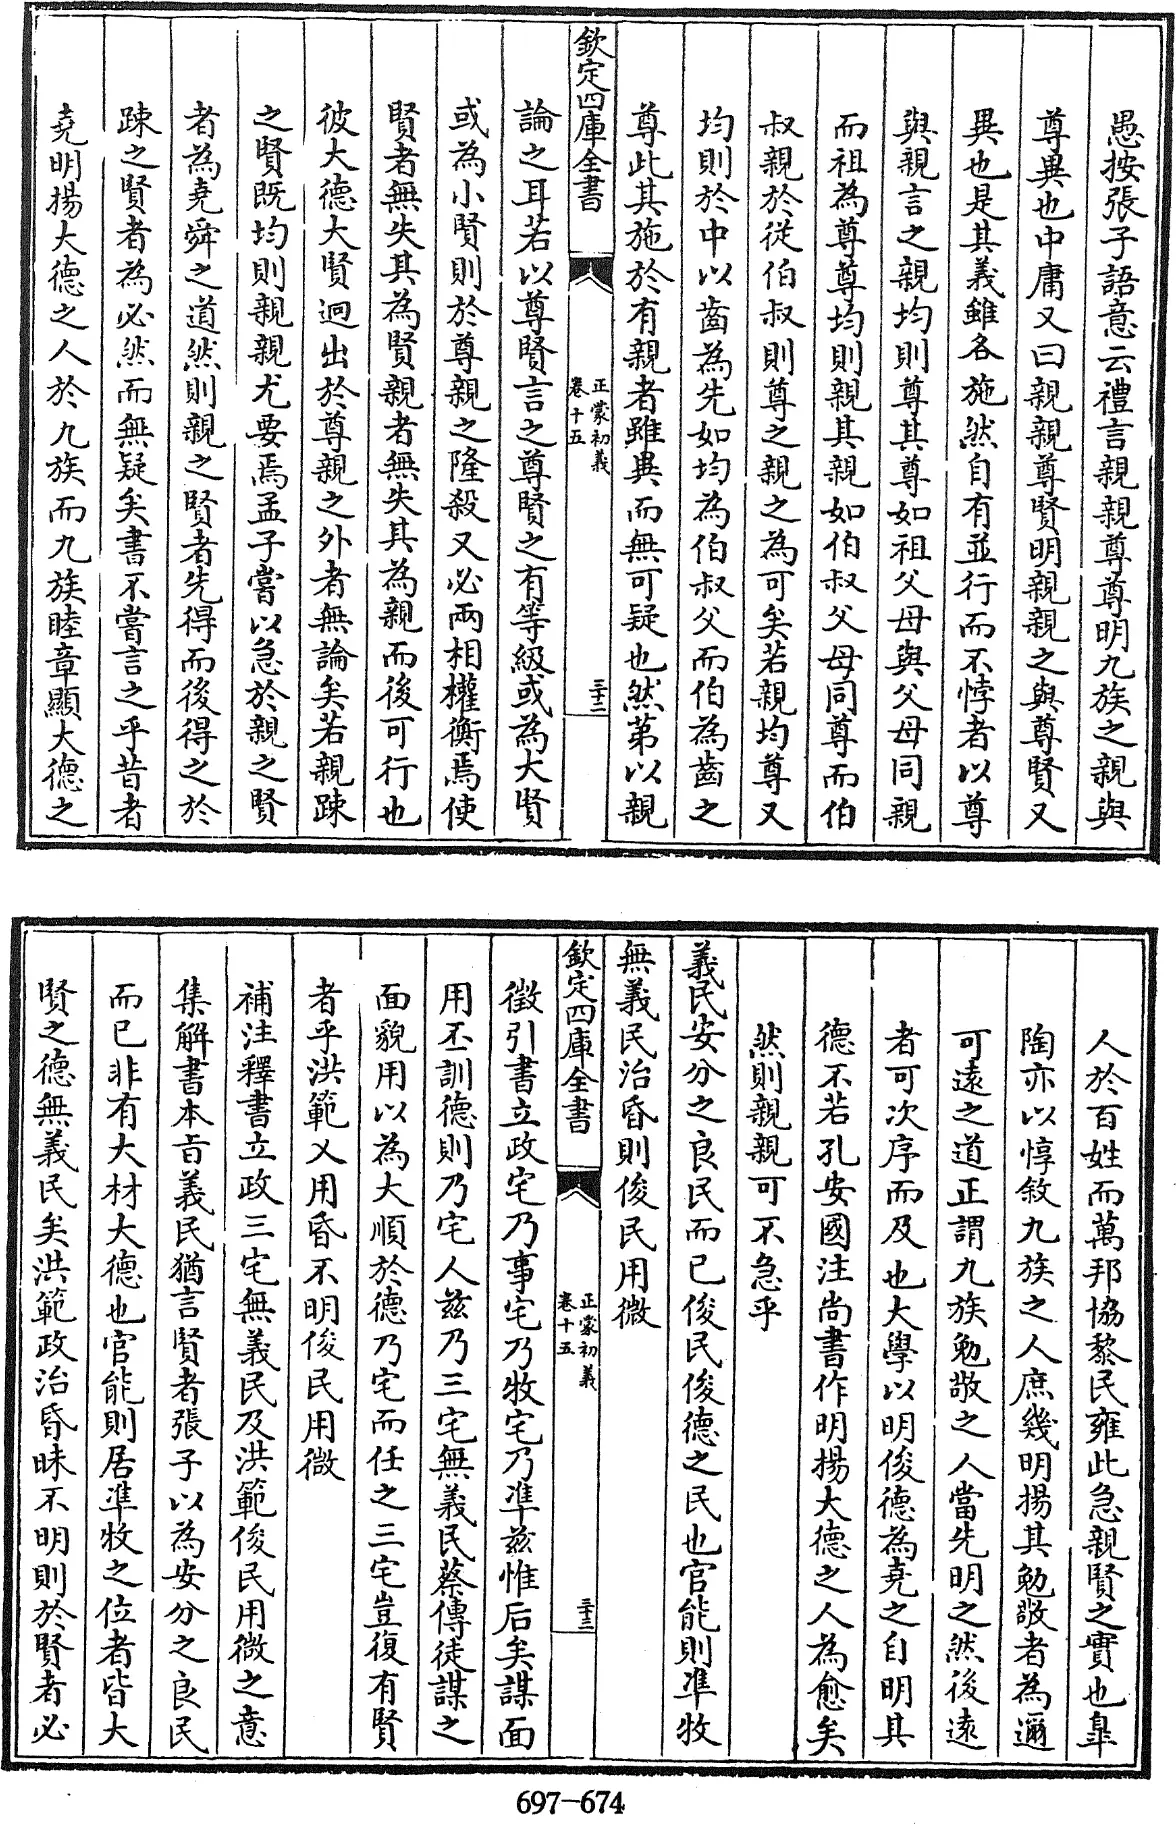 愚按張子語意云禮言親親尊尊明九族之親與
尊異也中庸又曰親親尊賢明親親之與尊賢又
異也是其義雖各施然自有並行而不悖者以尊
與親言之親均則尊其尊如祖父母與父母同親
而祖為尊尊均則親其親如伯叔父母同尊而伯
叔親於從伯叔則尊之親之為可矣若親均尊又
均則於中以齒為先如均為伯叔父而伯為齒之
尊此其施於有親者雖異而無可疑也然第以親
欽定四庫全書
正蒙初義
卷十五
三十二
論之耳若以尊賢言之尊賢之有等級或為大賢
或為小賢則於尊親之隆殺又必兩相權衡焉使
賢者無失其為賢親者無失其為親而後可行也
彼大德大賢迥出於尊親之外者無論矣若親踈
之賢既均則親親尤要焉孟子嘗以急於親之賢
者為堯舜之道然則親之賢者先得而後得之於
踈之賢者為必然而無疑矣書不嘗言之乎昔者
堯明揚大德之人於九族而九族睦章顯大德之
人於百姓而萬邦協黎民雍此急親賢之實也臯
陶亦以惇敘九族之人庶幾明揚其勉敬者為邇
可遠之道正謂九族勉敬之人當先明之然後遠
者可次序而及也大學以明俊德為堯之自明其
德不若孔安國注尚書作明揚大德之人為愈矣
然則親親可不急乎
義民安分之良民而已俊民俊德之民也官能則準牧
無義民治昏則俊民用微
欽定四庫全書
正蒙初義
卷十五
三十二
徵引書立政宅乃事宅乃牧宅乃準兹惟后矣謀面
用丕訓德則乃宅人兹乃三宅無義民蔡傳徒謀之
面貌用以為大順於德乃宅而任之三宅豈復有賢
者乎洪範乂用昏不明俊民用微
補注釋書立政三宅無義民及洪範俊民用微之意
集解書本旨義民猶言賢者張子以為安分之良民
而已非有大材大德也官能則居準牧之位者皆大
賢之德無義民矣洪範政治昏昧不明則於賢者必
697-674